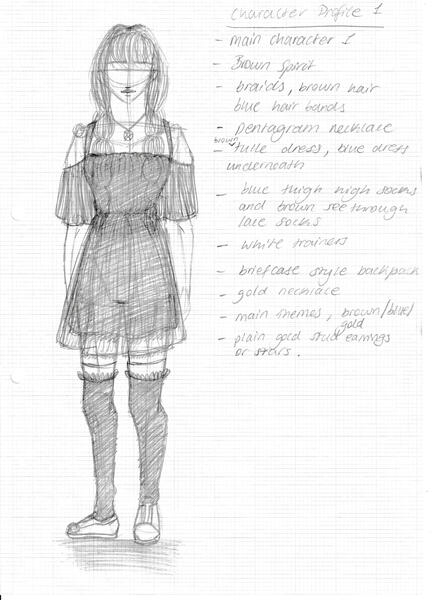 Character Profile 1
- main character 1
- Brown Spirit
- braids, brown hair
blue hair bands
- Pentagram necklace
brown
- tulle dress, blue dress
underneath
- blue thigh high socks
and brown see through
lace socks
- white trainers
- briefcase style backpack
- gold necklace
- main themes, brown/blue/
gold
- plain gold stud earrings
or stars.